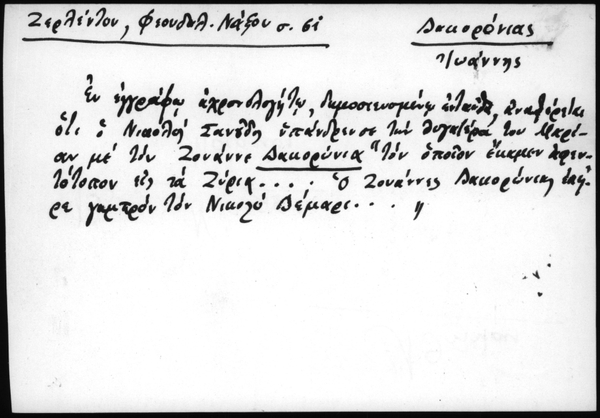 Ζερλέντου, Φεουδαλ. Νάξου σ. 61
Δακορόνιας
Ἰωάννης
Ἐν ἐγγράφῳ ἀχρονολογήτῳ, δημοσιευομένῳ ἐνταῦθα, ἀναφέρεται
ὅτι ὁ Νικολὸς ὑπάνδρευσε τὴν θυγατέρα του Μαρί-
αν μὲ τὸν Ζουάννε Δακορόνια "τὸν ὁποῖον ἔκαμεν ἀφεν-
τότοπον εἰς τὰ .... Ὁ Ζουάννες Δακορόνιας ἐπῆ-
ρε γαμπρὸν τὸν Νικολὸ Δέμαρι... "